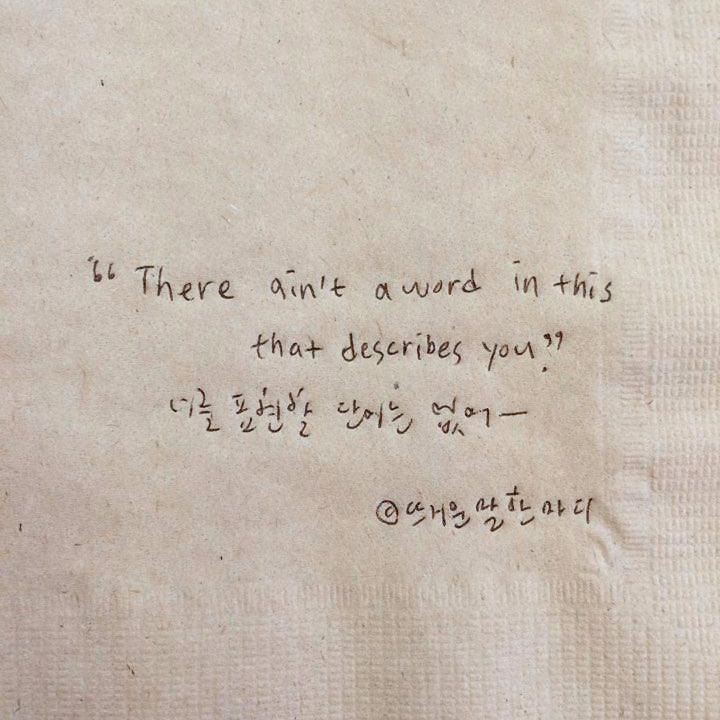 “There ain't a word in this
that describes you.”
너를 표현할 단어는 없어—
@뜨거운말한마디